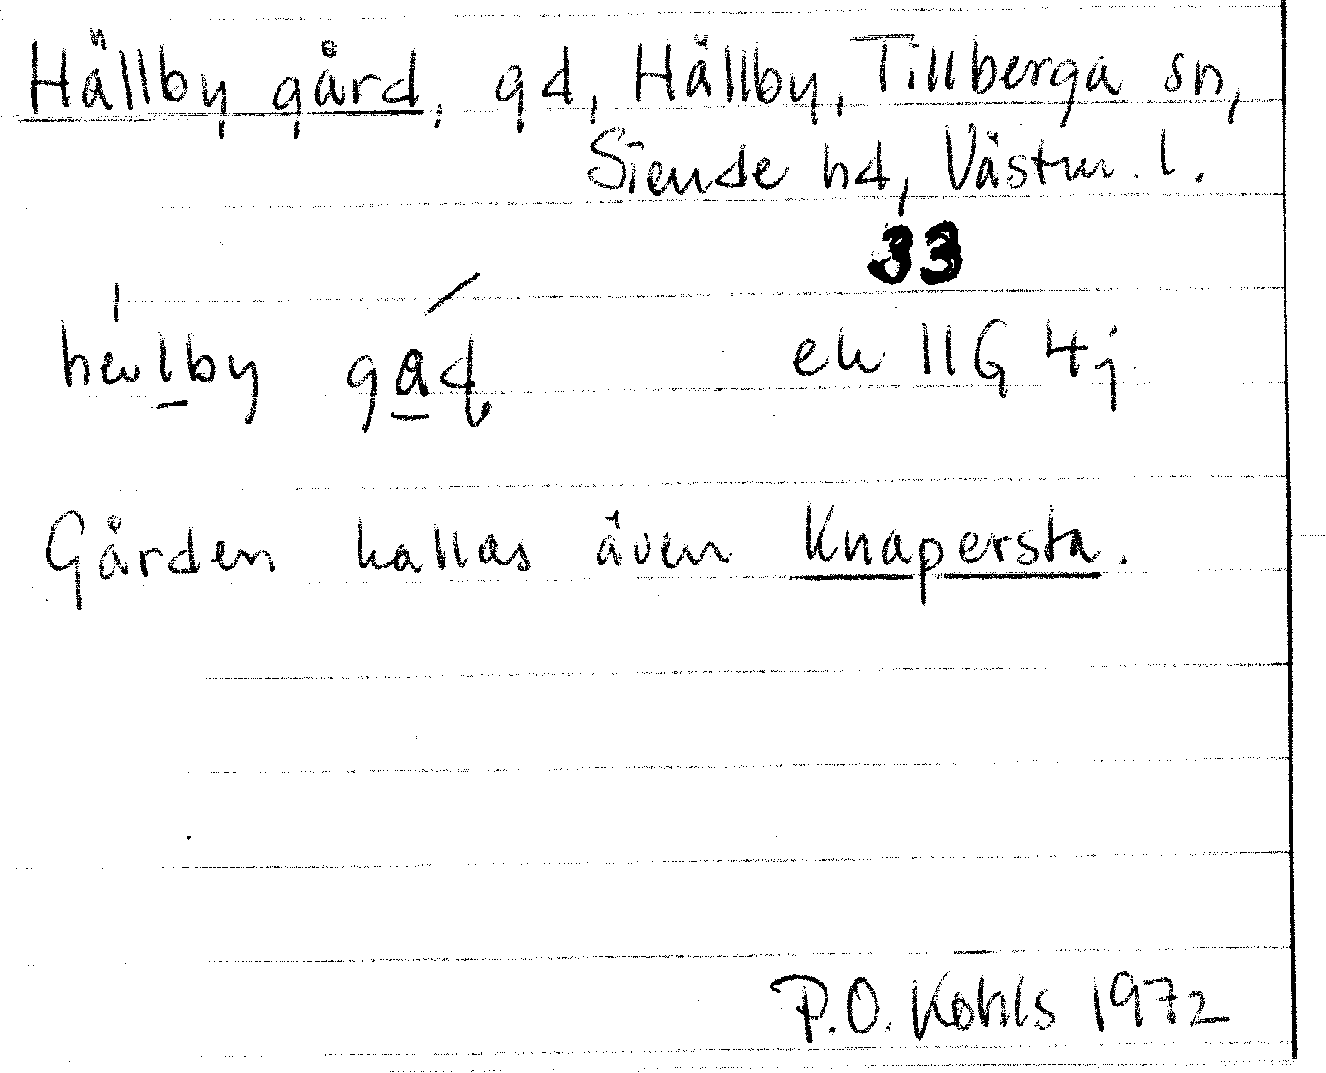 Hällby gård, gd, Hällby, Tillberga sn,
Siende hd, Västm. l.
33
ek 11G 4j
Gården kallas även Knapersta.
P.O. Kohls 1972